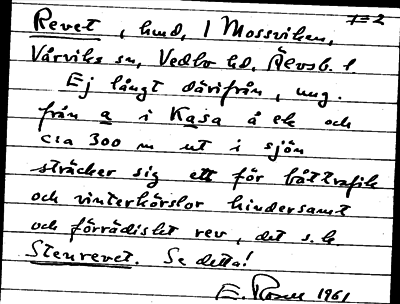 1=2
Revet, hund, I Mossviken,
Vårviks sn, Vedbo hd, Älvsb. l.
Ej långt därifrån, ung.
från a i Kasa å ek och
c:a 300 m ut i sjön
sträcker sig ett för båttrafik
och vinterkörslor hindersamt
och förrädiskt rev, det s. k.
Stenrevet. Se detta!
E. Rosell 1961